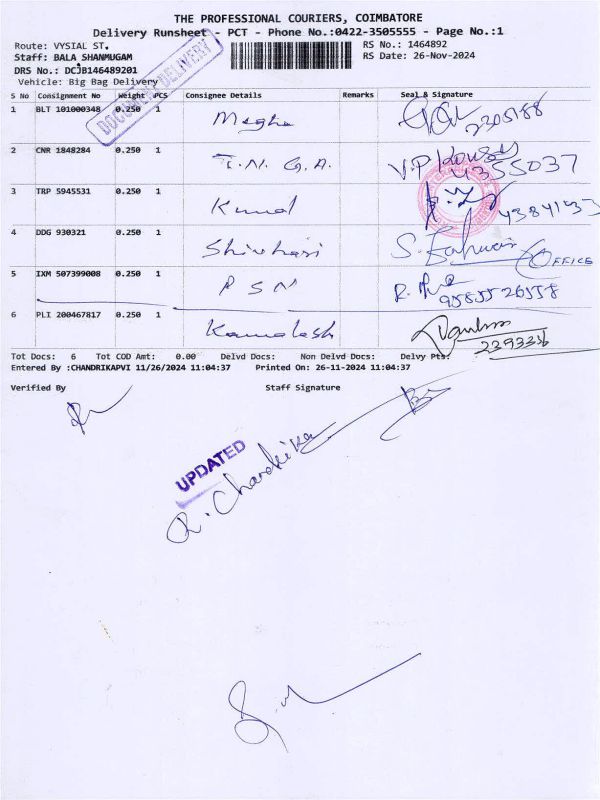 THE PROFESSIONAL COURIERS, COIMBATORE
Delivery Runsheet - PCT - Phone No.:0422-3505555 - Page No.:1
Route: VYSIAL ST.
RS No.: 1464892
Staff: BALA SHANMUGAM
RS Date: 26-Nov-2024
DRS No.: DCJB146489201
Vehicle: Big Bag Delivery
DOCUMENT DELIVERY
S No Consignment No Weight PCS Consignee Details Remarks Seal & Signature
1 BLT 101000348 0.250 1 Megha 2305188
2 CNR 1848284 0.250 1 T.N.G.A. V.P 4355037
3 TRP 5945531 0.250 1 Kunal
4 DDG 930321 0.250 1 Shivhari S. OFFICE
5 IXM 507399008 0.250 1 PSN R.
6 PLI 200467817 0.250 1 Kamalesh
Tot Docs: 6 Tot COD Amt: 0.00 Delvd Docs: Non Delvd Docs: Delvy Pts:
Entered By :CHANDRIKAPVI 11/26/2024 11:04:37 Printed On: 26-11-2024 11:04:37
Verified By Staff Signature
UPDATED
R. Chandrika